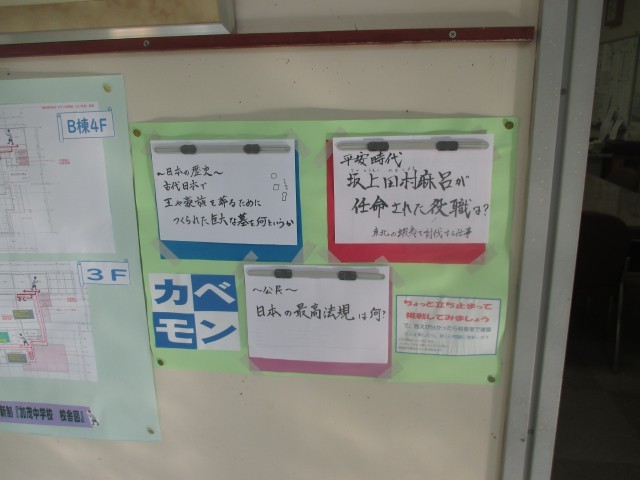 B棟4F
3F
新刻『加茂中学校 校舎図』
~日本の歴史~
古代日本で
王や豪族を葬るために
つくられた巨大な墓を何というか
平安時代
坂上田村麻呂が
任命された役職は?
東北の蝦夷を討伐する仕事
カベ
モン
~公民~
日本の最高法規は何?
ちょっと立ち止まって
挑戦してみましょう